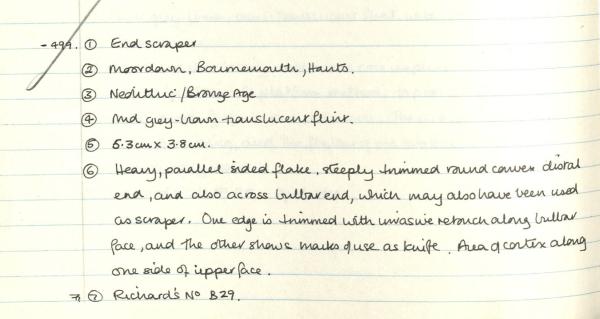 - 499. ① End scraper
② Moordown, Bournemouth, Hants.
③ Neolithic / Bronze Age
④ Mid grey-brown translucent flint.
⑤ 5.3cm x 3.8cm.
⑥ Heavy, parallel sided flake, steeply trimmed round convex distal
end, and also across bulbar end, which may also have been used
as scraper. One edge is trimmed with invasive retouch along bulbar
face, and the other shows marks of use as knife. Area of cortex along
one side of upper face.
⑦ Richard's No 829.